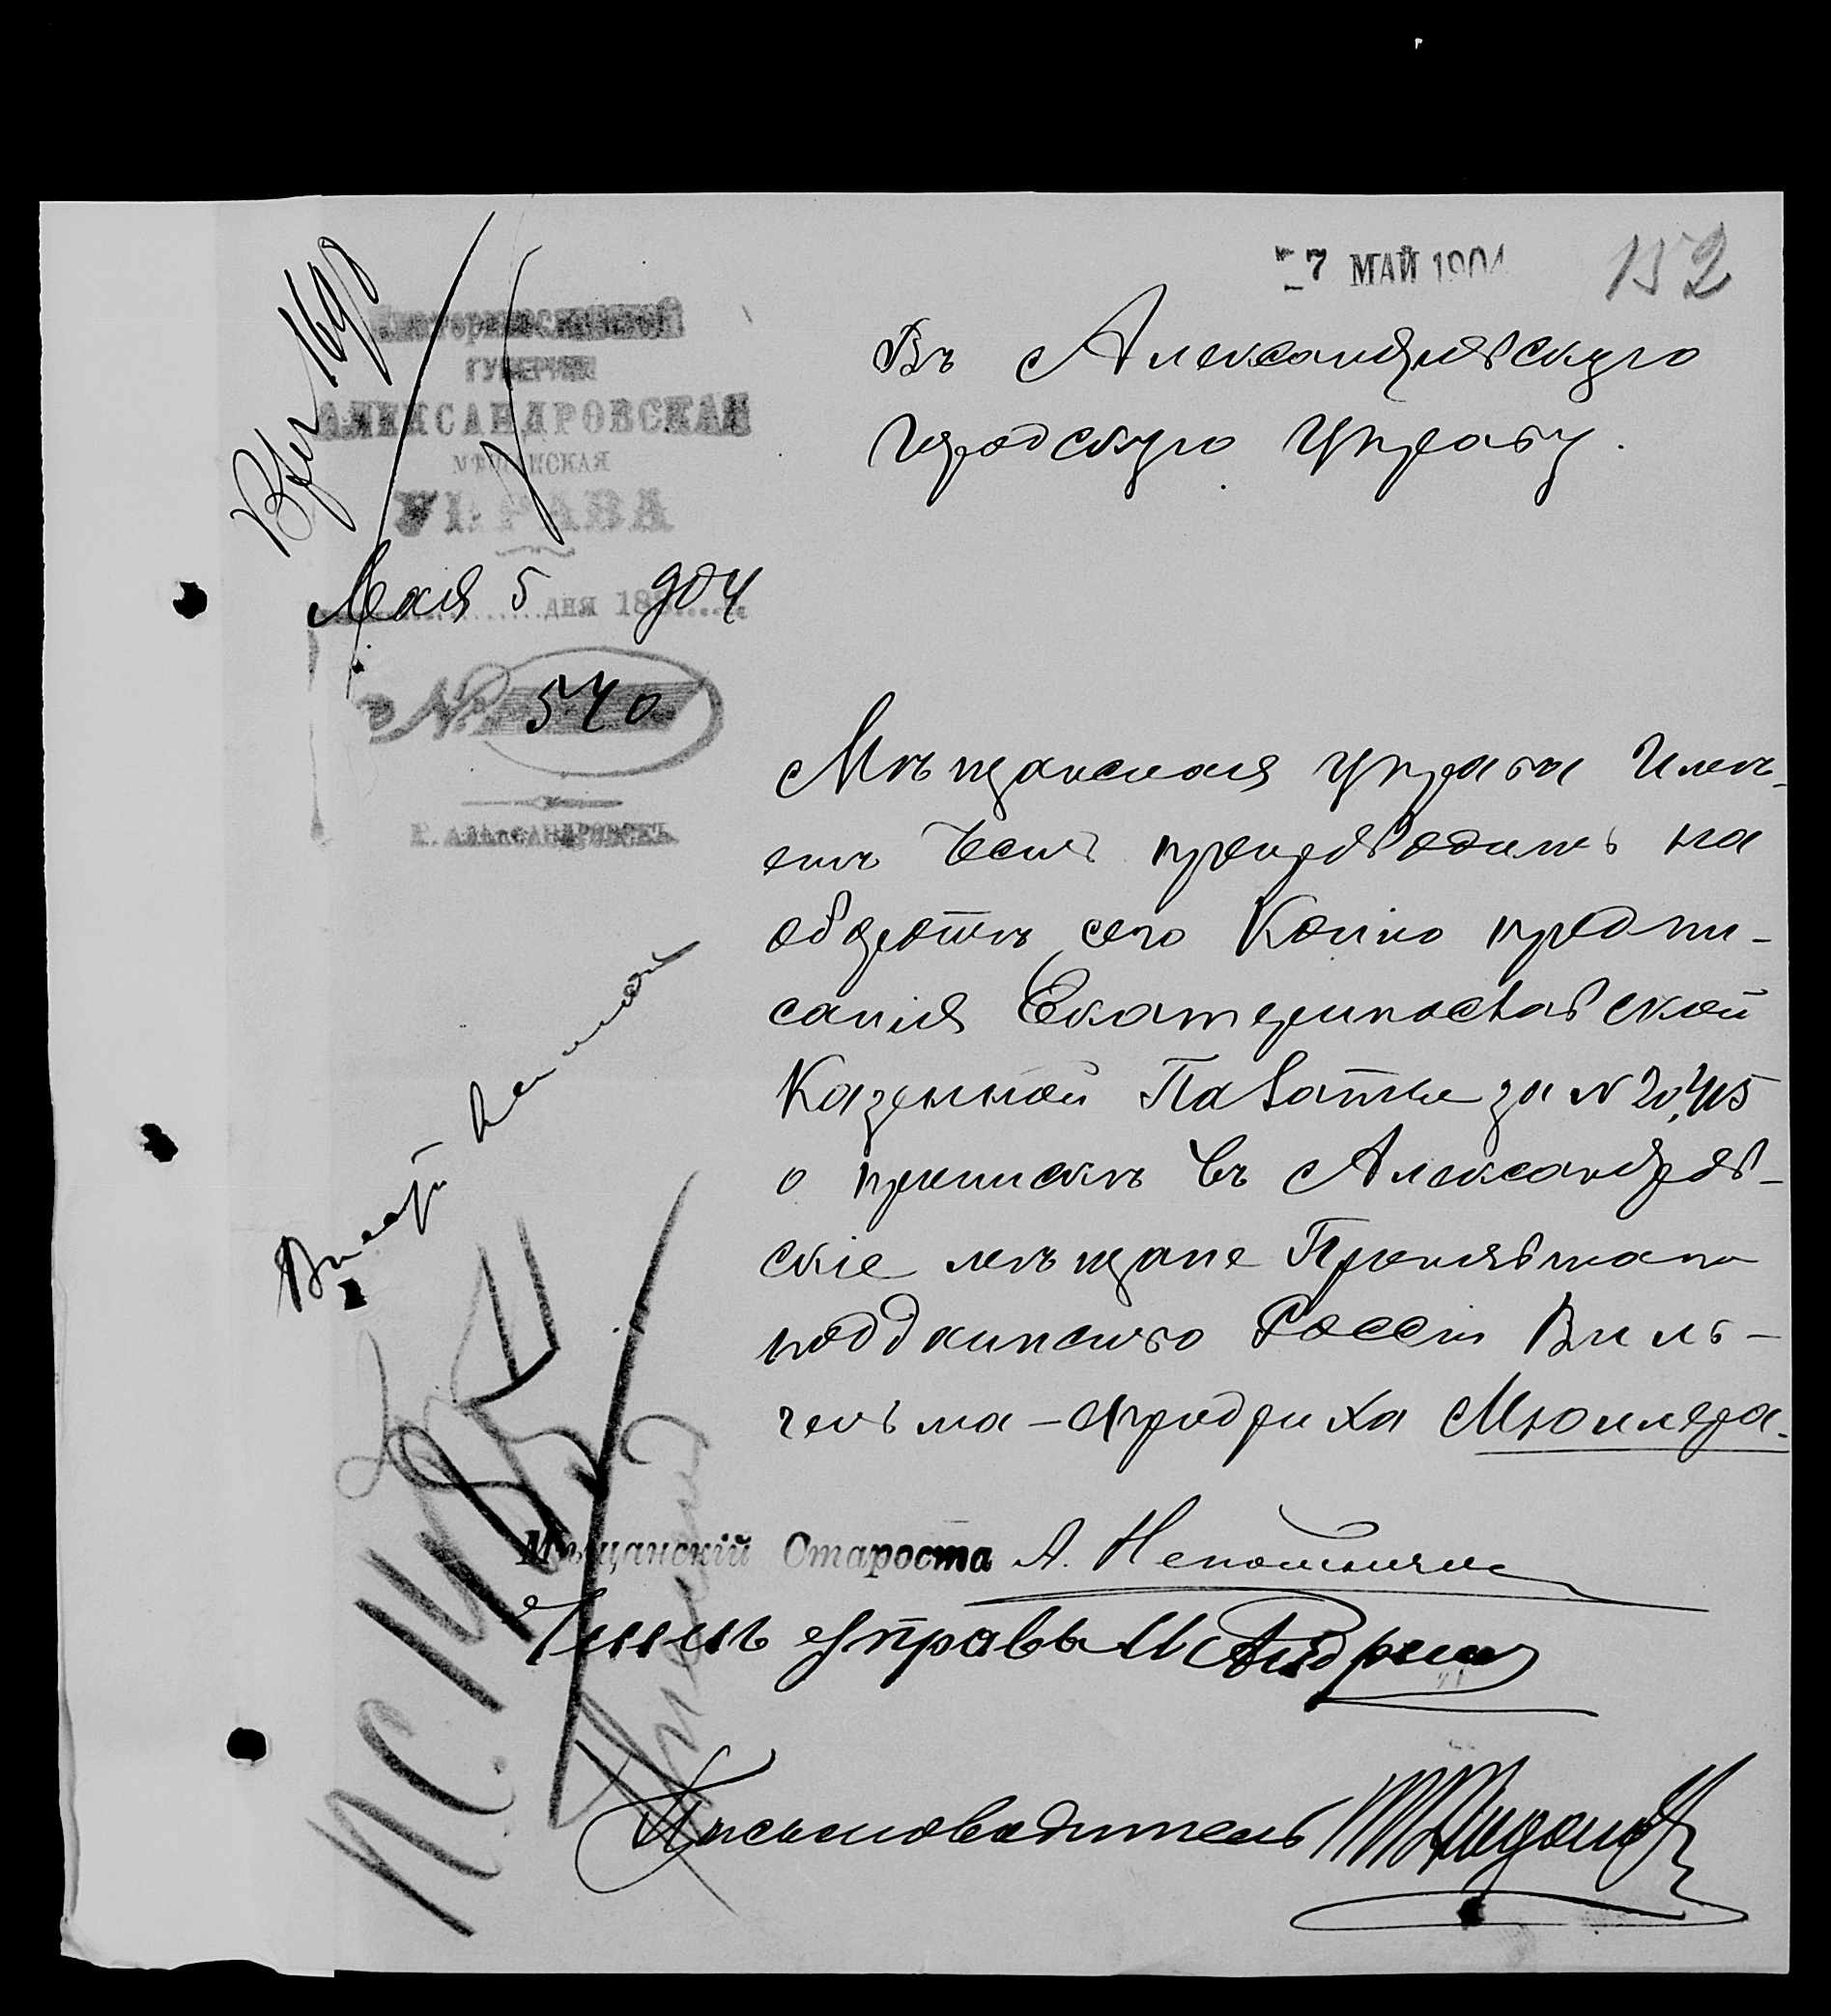 7 МАЙ 1904
152
Екатеринославской
ГУБЕРНІИ
АЛЕКСАНДРОВСКАЯ
МѢЩАНСКАЯ
УПРАВА
Мая 5 дня 189 904
№ 540
Г. АЛЕКСАНДРОВСКЪ
Въ Александровскую
Городскую Управу.
Мѣщанская Управа Имѣ-
етъ честь препроводить на
оборотѣ сего Копію предпи-
санія Екатеринославской
Казенной Палаты за № 20,415
о припискѣ въ Александров-
скіе мѣщане Принявшаго
подданство Россіи Виль-
гельма-Фридриха Мюллера.
Мѣщанскій Староста А.
Членъ Управы
Письмоводитель